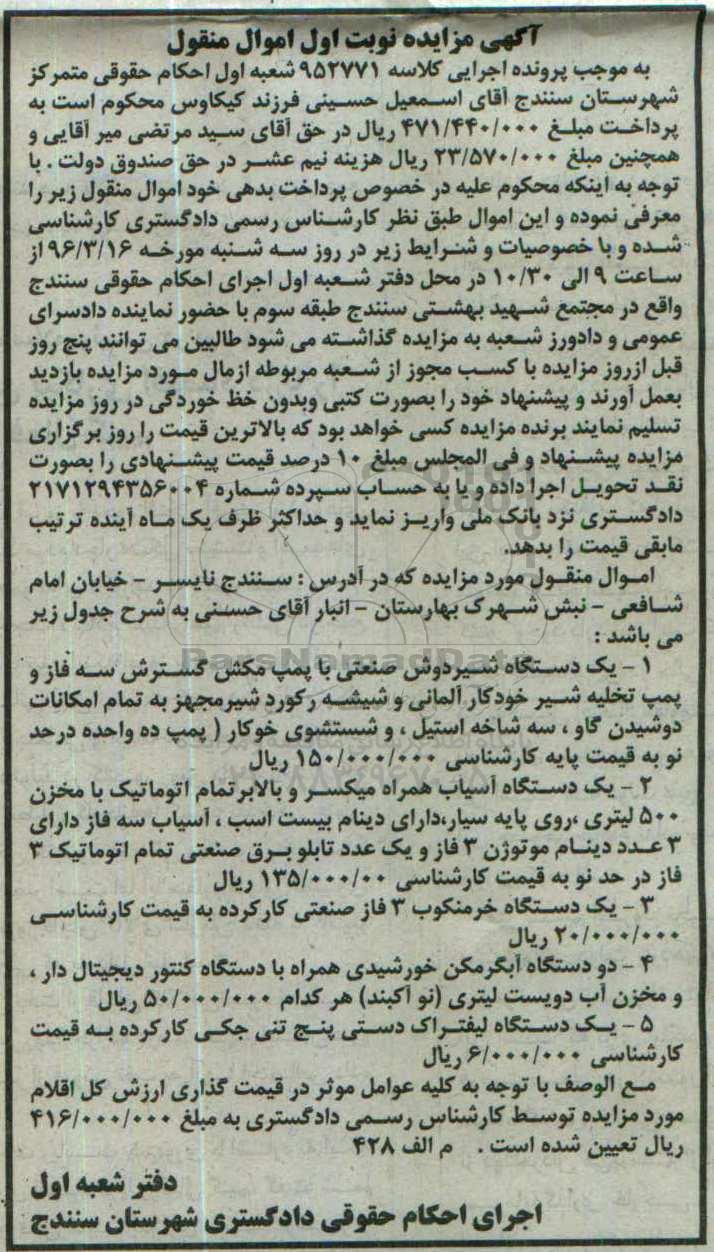 آگهی مزایده نوبت اول اموال منقول
به موجب پرونده اجرایی کلاسه ۹۵۲۷۷۱ شعبه اول احکام حقوقی متمرکز
شهرستان سنندج آقای اسمعیل حسینی فرزند کیکاوس محکوم است به
پرداخت مبلغ ۴۷۱/۴۴۰/۰۰۰ ریال در حق آقای سید مرتضی میر آقایی و
همچنین مبلغ ۲۳/۵۷۰/۰۰۰ ریال هزینه نیم عشر در حق صندوق دولت . با
توجه به اینکه محکوم علیه در خصوص پرداخت بدهی خود اموال منقول زیر را
معرفی نموده و این اموال طبق نظر کارشناس رسمی دادگستری کارشناسی
شده و با خصوصیات و شرایط زیر در روز سه شنبه مورخه ۹۶/۳/۱۶ از
ساعت ۹ الی ۱۰/۳۰ در محل دفتر شعبه اول اجرای احکام حقوقی سنندج
واقع در مجتمع شهید بهشتی سنندج طبقه سوم با حضور نماینده دادسرای
عمومی و دادورز شعبه به مزایده گذاشته می شود طالبین می توانند پنج روز
قبل ازروز مزایده با کسب مجوز از شعبه مربوطه ازمال مورد مزایده بازدید
بعمل آورند و پیشنهاد خود را بصورت کتبی وبدون خظ خوردگی در روز مزایده
تسلیم نمایند برنده مزایده کسی خواهد بود که بالاترین قیمت را روز برگزاری
مزایده پیشنهاد و فی المجلس مبلغ ۱۰ درصد قیمت پیشنهادی را بصورت
نقد تحویل اجرا داده و یا به حساب سپرده شماره ۲۱۷۱۲۹۴۳۵۶۰۰۴
دادگستری نزد بانک ملی واریز نماید و حداکثر ظرف یک ماه آینده ترتیب
مابقی قیمت را بدهد.
اموال منقول مورد مزایده که در آدرس : سنندج نایسر - خیابان امام
شافعی - نبش شهرک بهارستان - انبار آقای حسنی به شرح جدول زیر
می باشد :
ParsNamadData
۱ - یک دستگاه شیردوش صنعتی با پمپ مکش گسترش سه فاز و
پمپ تخلیه شیر خودکار آلمانی و شیشه رکورد شیرمجهز به تمام امکانات
دوشیدن گاو ، سه شاخه استیل ، و شستشوی خوکار ( پمپ ده واحده درحد
نو به قیمت پایه کارشناسی ۱۵۰/۰۰۰/۰۰۰ ریال
۲ - یک دستگاه آسیاب همراه میکسر و بالابرتمام اتوماتیک با مخزن
۵۰۰ لیتری ،روی پایه سیار،دارای دینام بیست اسب ، آسیاب سه فاز دارای
۳ عدد دینام موتوژن ۳ فاز و یک عدد تابلو برق صنعتی تمام اتوماتیک ۳
فاز در حد نو به قیمت کارشناسی ۱۳۵/۰۰۰/۰۰ ریال
۳ - یک دستگاه خرمنکوب ۳ فاز صنعتی کارکرده به قیمت کارشناسی
۲۰/۰۰۰/۰۰۰ ریال
۴ - دو دستگاه آبگرمکن خورشیدی همراه با دستگاه کنتور دیجیتال دار ،
و مخزن آب دویست لیتری (نو آکبند) هر کدام ۵۰/۰۰۰/۰۰۰ ریال
۵ - یک دستگاه لیفتراک دستی پنج تنی جکی کارکرده به قیمت
کارشناسی ۶/۰۰۰/۰۰۰ ریال
مع الوصف با توجه به کلیه عوامل موثر در قیمت گذاری ارزش کل اقلام
مورد مزایده توسط کارشناس رسمی دادگستری به مبلغ ۴۱۶/۰۰۰/۰۰۰
ریال تعیین شده است . م الف ۴۲۸
دفتر شعبه اول
اجرای احکام حقوقی دادگستری شهرستان سنندج